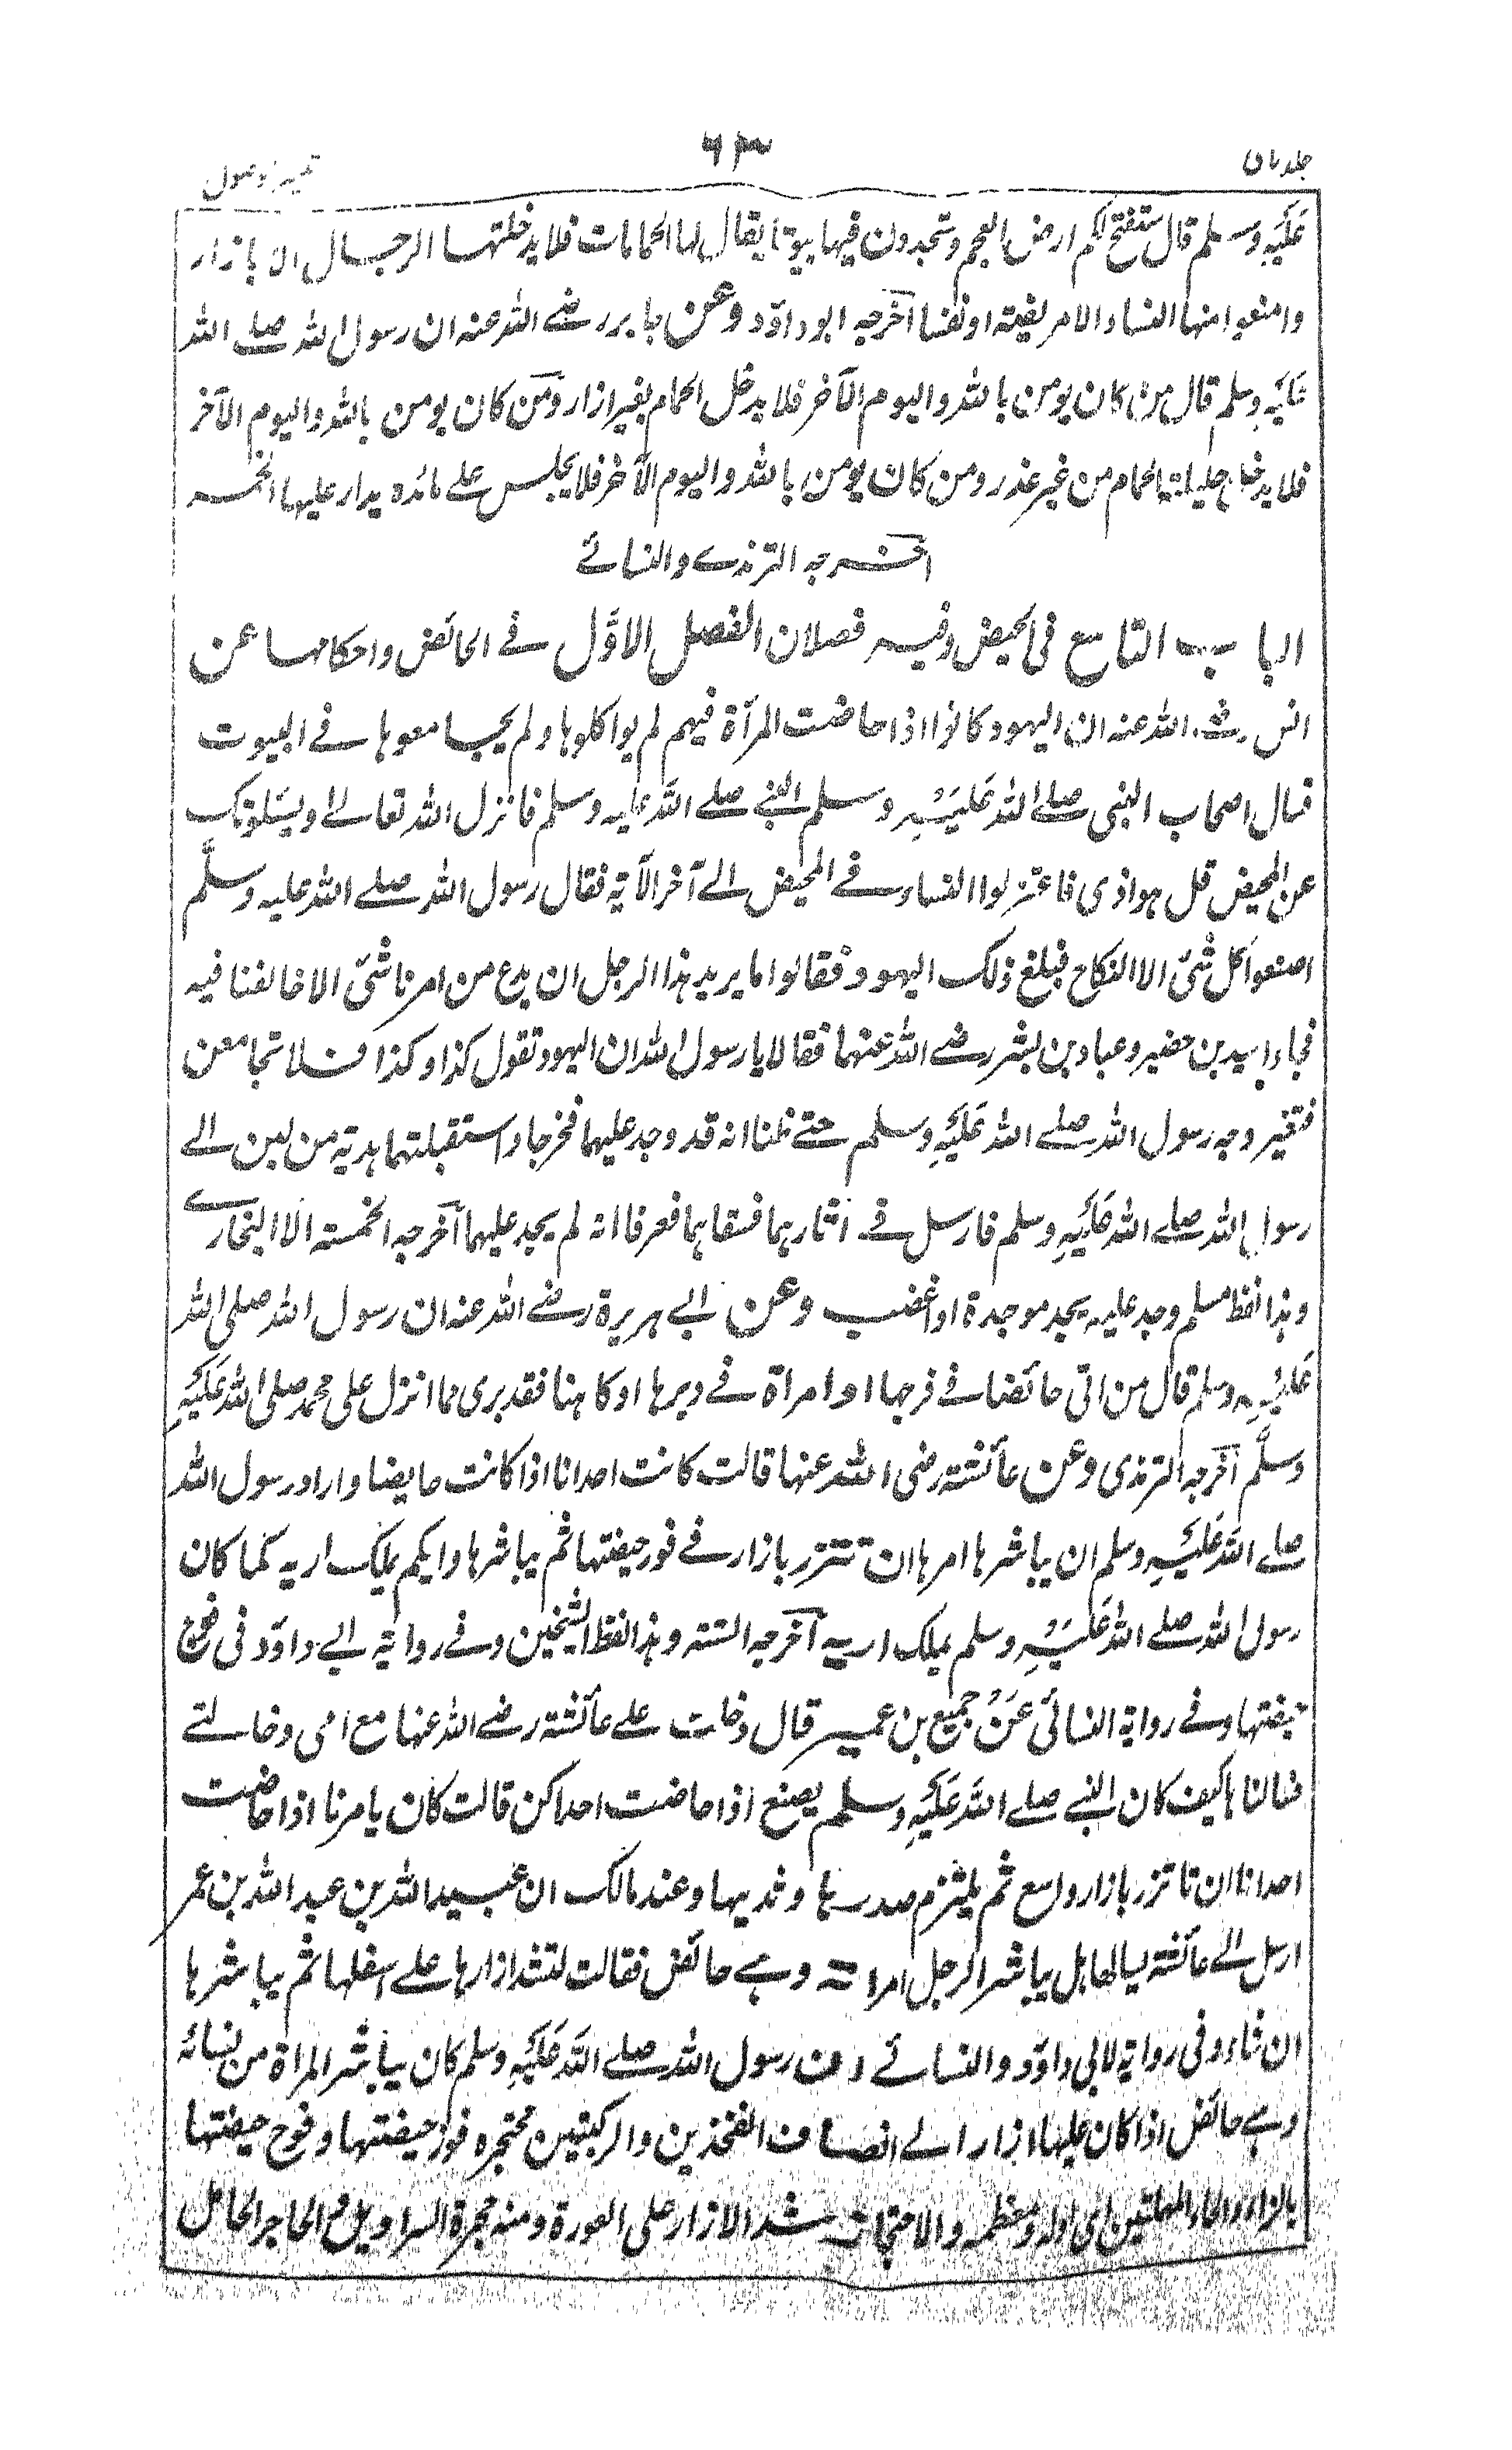 ۶۳
عَلَيْهِ وسلم قال ستفتح لكم ارض العجم وتجدون فيها بيوتا يقال لها الحمامات فلا يدخلنها الرجال الا بازار
وامنعوا منها النساء الا مريضة او نفسا اخرجه ابو داؤد وعن جابر رضے الله عنه ان رسول الله صلے الله
عَلَيْهِ وسلم قال من كان يومن بالله واليوم الآخر فلا يدخل الحمام بغير ازار ومن كان يومن بالله واليوم الآخر
فلا يدخل حليلته الحمام من غير عذر ومن كان يومن بالله واليوم الآخر فلا يجلس علے مائده يدار عليها الخمر
اخرجه الترمذے والنسائے
الباب التاسع فى الحيض وفيه فصلان الفصل الاوّل فے الحائض واحكامها عن
انس رضے الله عنه ان اليهود كانوا اذا حاضت المرآة فيهم لم يواكلوها ولم يجامعوها فے البيوت
فسال اصحاب النبى صلے الله عَلَيْهِ وسلم النبے صلے الله عليه وسلم فانزل الله تعالے ويسئلونك
عن المحيض قل هو اذى فاعتزلوا النساء فے المحيض الے آخر الآية فقال رسول الله صلے الله عليه وسلَّم
اصنعوا كل شئ الا النكاح فبلغ ذلك اليهود فقالوا ما يريد هذا الرجل ان يدع من امرنا شئ الا خالفنا فيه
فجاء اسيد بن حضير وعباد بن بشر رضے الله عنهما فقالا يا رسول الله ان اليهود تقول كذا وكذا فلا نجامعهن
فتغير وجه رسول الله صلے الله عَلَيْهِ وسلم حتے ظننا انه قد وجد عليهما فخرجا واستقبلتهما هدية من لبن الے
رسول الله صلے الله عَلَيْهِ وسلم فارسل فے اثارهما فسقاهما فعرفا انه لم يجد عليهما اخرجه الخمسة الا البخارے
وهذا لفظ مسلم وجد عليه يجد موجدة اذا غضب وعن ابے هريرة رضے الله عنه ان رسول الله صلى الله
عَلَيْهِ وسلم قال من اتى حائضا فے فرجها او امراة فے دبرها او كاهنا فقد برى مما انزل على محمد صلى الله عَلَيْهِ
وسلَّم اخرجه الترمذى وعن عائشة رضى الله عنها قالت كانت احدانا اذا كانت حايضا واراد رسول الله
صلے الله عَلَيْهِ وسلم ان يباشرها امرها ان تتزر بازار فے فور حيضتها ثم يباشرها وايكم يملك اربه كما كان
رسول الله صلے الله عَلَيْهِ وسلم يملك اربه اخرجه الستة وهذا لفظ الشيخين وفے رواية ابے داؤد فى فوح
حيضتها وفے رواية النسائى عَنْ جميع بن عمير قال دخلت علے عائشة رضے الله عنها مع امى وخالتے
فسالناها كيف كان النبے صلے الله عَلَيْهِ وسلم يصنع اذا حاضت احداكن قالت كان يامرنا اذا حاضت
احدانا ان تاتزر بازار واسع ثم يلتزم صدرها وثدييها وعند مالك ان عبيد الله بن عبد الله بن عمر
ارسل الے عائشة يسالها هل يباشر الرجل امراته وهے حائض فقالت لتشد ازارها علے اسفلها ثم يباشرها
ان شاء وفى رواية لابى داؤد والنسائے ان رسول الله صلے الله عَلَيْهِ وسلم كان يباشر المراة من نسائه
وهے حائض اذا كان عليها ازار الے انصاف الفخذين والركبتين محتجزه فور حيضتها وفوح حيضتها
بالراء والحاء المهملتين اى اوله ومعظمه والاحتجاز شد الازار على العورة ومنه حجزة السراويل والحاجز الحائل